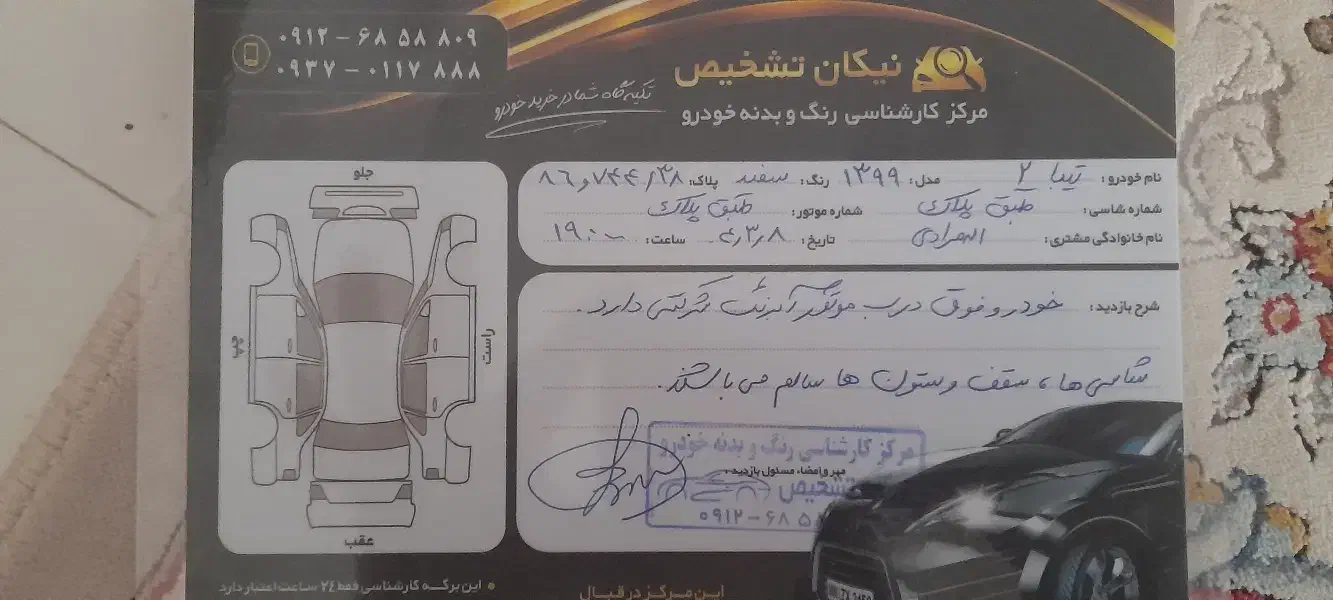 ۰۹۱۲ – ۶۸ ۵۸ ۸۰۹
۰۹۳۷ – ۰۱۱۷ ۸۸۸
نیکان تشخیص
تکیه گاه شما در خرید خودرو
مرکز کارشناسی رنگ و بدنه خودرو
نام خودرو: تیبا ۲ مدل: ۱۳۹۹ رنگ: سفید پلاک: ۸۶ و ۷۴۴/۳۸
شماره شاسی: طبق پلاک شماره موتور: طبق پلاک
نام خانوادگی مشتری: تاریخ: ۴/۳/۸ ساعت: ۱۹:۰۰
شرح بازدید: خودرو فوق درب موتور آبرنگ شرکتی دارد.
شاسی ها، سقف و ستون ها سالم می باشند.
مرکز کارشناسی رنگ و بدنه خودرو
مهر و امضاء مسئول بازدید:
تشخیص
۰۹۱۲ – ۶۸ ۵
جلو
راست
عقب
این برگه کارشناسی فقط ۲٤ ساعت اعتبار دارد
این مرکز در قبال